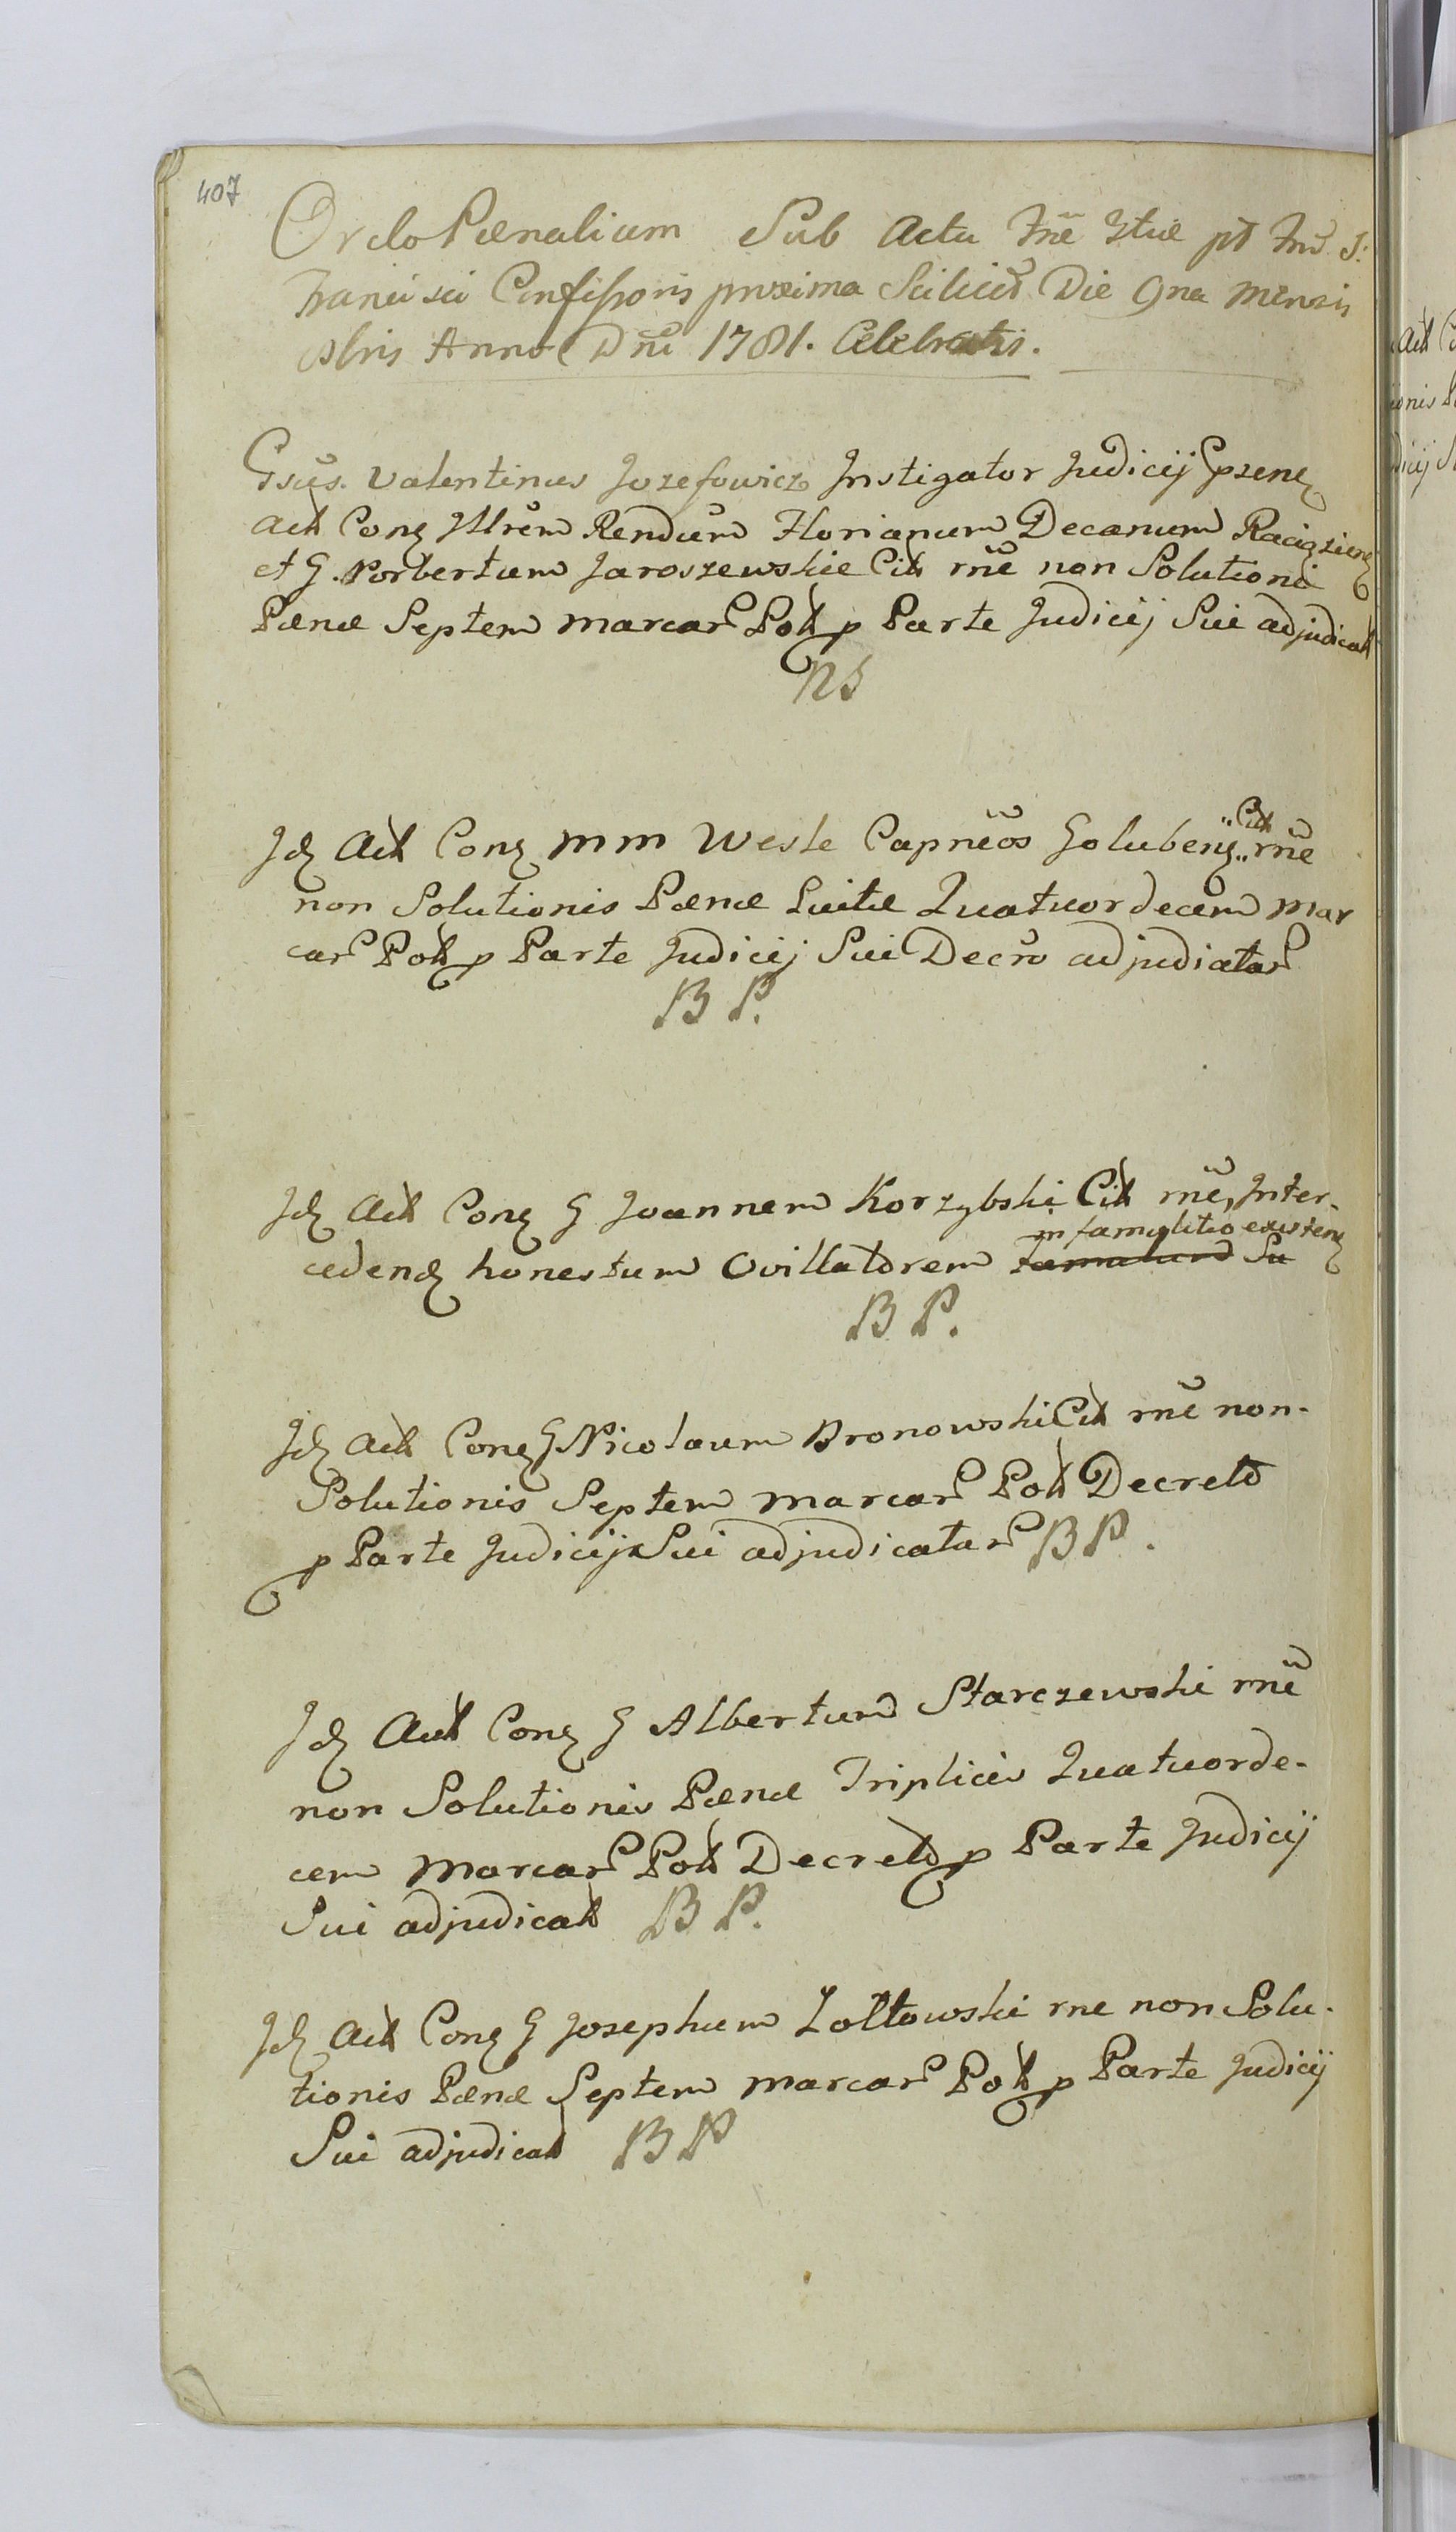 407
Ordo Pænalium Sub Actu Fñe Ftue pt Fnd S:
Francisci Confessoris proxima Scilicet Die 9na Mensis
8bris Anno Dñi 1781. Celebratis.
Gsus. Valentinus Jozefowicz Instigator Judicij Pszene
Act Cone Illrem Rendum Florianum Decanum Raciąziene
et G. Norbertum Jaroszewskie Cit rñe non Solutioni
Pænæ Septem marcar Pol p Parte Judicij Sui adjudicat
NS
Jd Act Cone mm Wesle Capneos Golubeng Cit rñe
non Solutionis Pænæ Luitæ Quatuordecem mar
car Pol p Parte Judicij Sui Decro adjudiatar
B P.
Jd Act Cone G Joannem Korzybski Cit rñe, Inter-
in famulitio existene
cedend honestum Ovillatorem famulum Su
B P.
Jd Act Cone G Nicolaum Bronowski Cit rñe non-
Solutionis Septem marcar Pol Decreto
p Parte Judicij Sui adjudicatar B P.
Jd Act Cone G Albertum Starczewski rñe
non Solutionis Pænæ Triplicis Quatuorde-
cem Marcar Pol Decreto p Parte Judicij
Sui adjudicat B P.
Jd Act Cone G Josephum Zołtowski rne non Solu-
tionis Pænæ Septem marcar Pol p Parte Judicij
Sui adjudicat B P